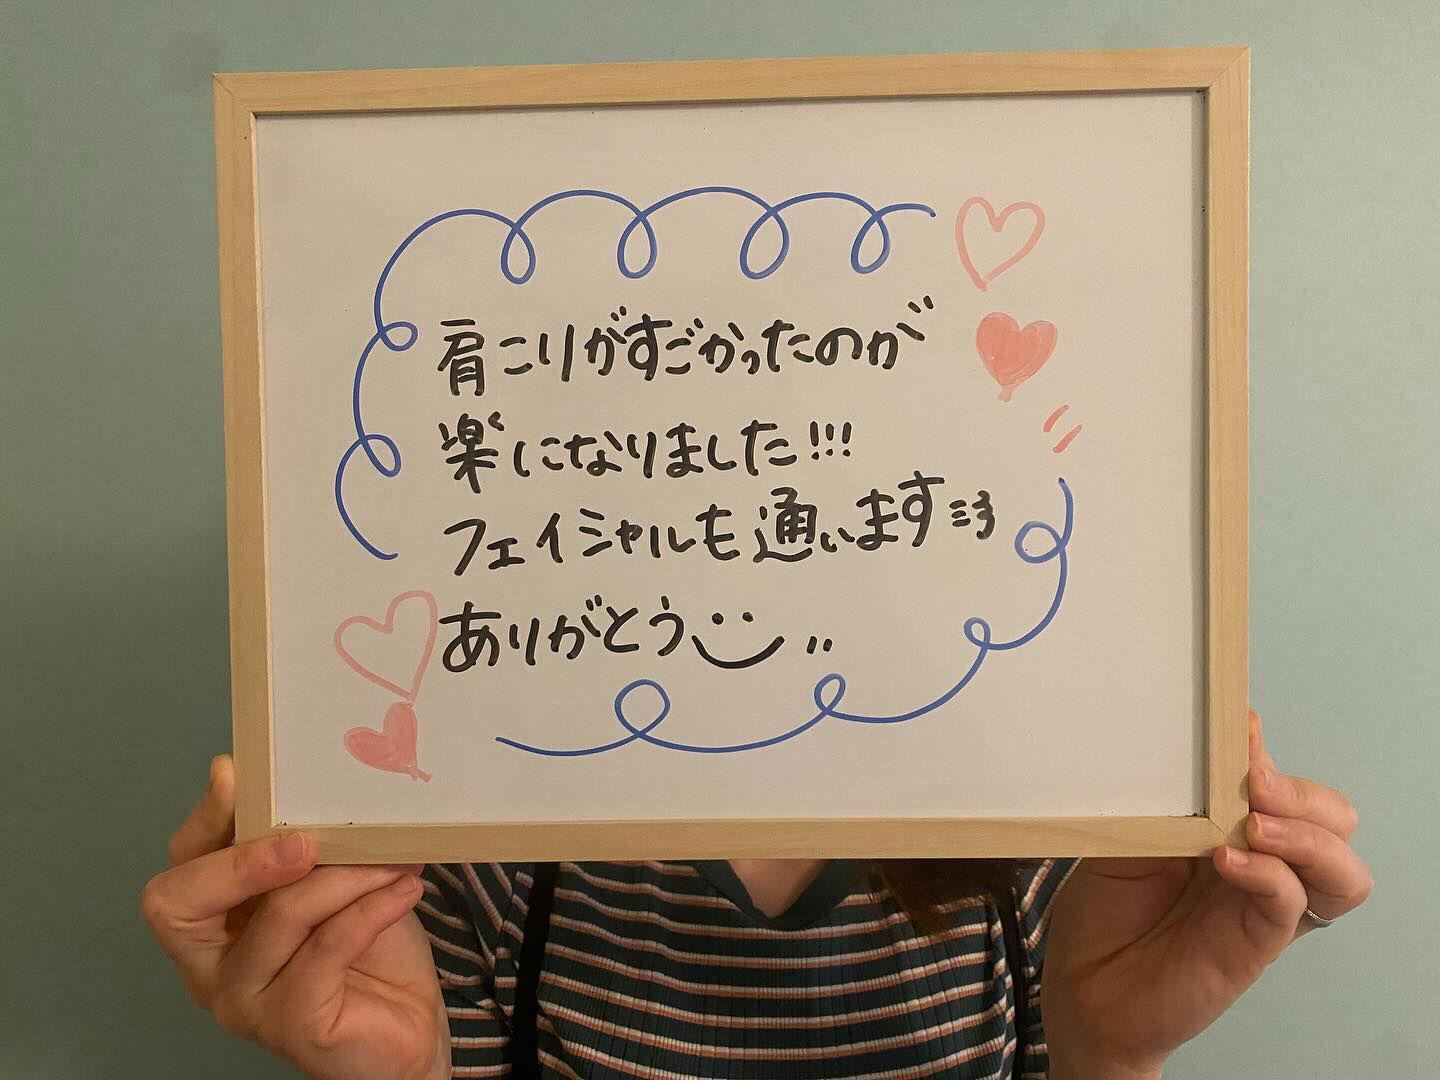 肩こりがすごかったのが
楽になりました!!!
フェイシャルも通います
ありがとう